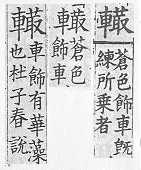 蒼色飾車既
練所乘者
蒼色
飾車
車飾有華藻
也杜子春說